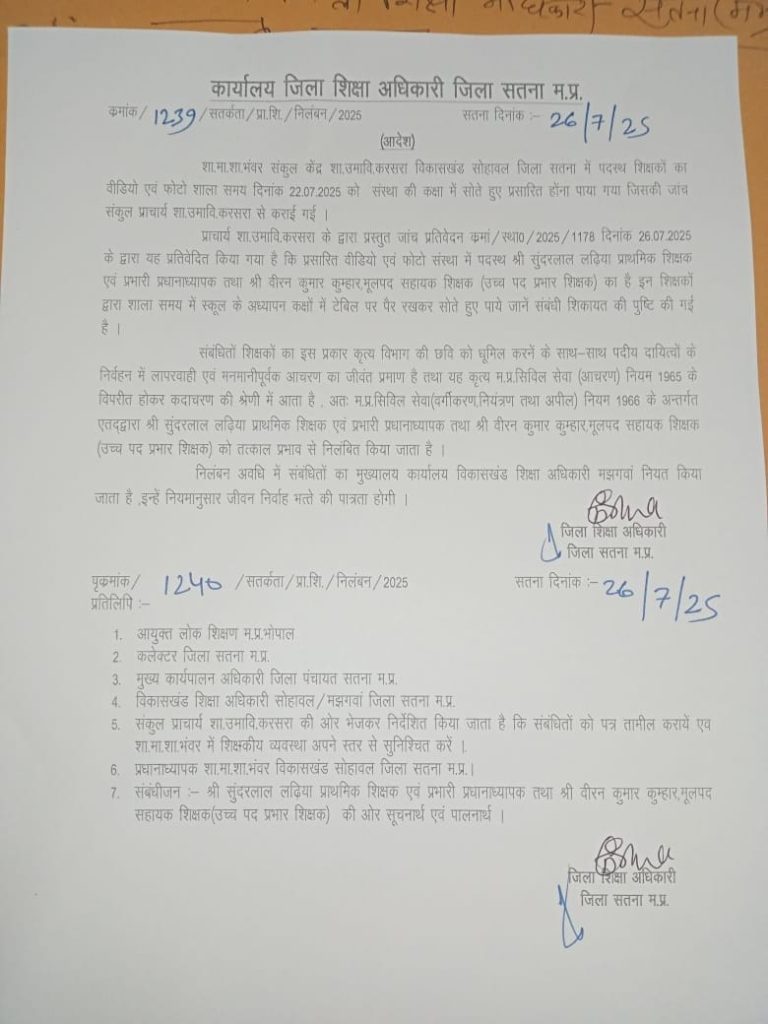 शिक्षा
सतना
कार्यालय जिला शिक्षा अधिकारी जिला सतना म.प्र.
कमांक/ 1239 /सतर्कता/प्रा.शि./निलंबन/2025 सतना दिनांक :- 26/7/25
(आदेश)
शा.मा.शा.भंवर संकुल केंद्र शा.उमावि.करसरा विकासखंड सोहावल जिला सतना में पदस्थ शिक्षकों का
वीडियो एवं फोटो शाला समय दिनांक 22.07.2025 को संस्था की कक्षा में सोते हुए प्रसारित होंना पाया गया जिसकी जांच
संकुल प्राचार्य शा.उमावि.करसरा से कराई गई ।
प्राचार्य शा.उमावि.करसरा के द्वारा प्रस्तुत जांच प्रतिवेदन कमां/स्था0/2025/1178 दिनांक 26.07.2025
के द्वारा यह प्रतिवेदित किया गया है कि प्रसारित वीडियो एवं फोटो संस्था में पदस्थ श्री सुंदरलाल लढ़िया प्राथमिक शिक्षक
एवं प्रभारी प्रधानाध्यापक तथा श्री वीरन कुमार कुम्हार,मूलपद सहायक शिक्षक (उच्च पद प्रभार शिक्षक) का है इन शिक्षकों
द्वारा शाला समय में स्कूल के अध्यापन कक्षों में टेबिल पर पैर रखकर सोते हुए पाये जानें संबंधी शिकायत की पुष्टि की गई
है ।
संबंधितों शिक्षकों का इस प्रकार कृत्य विभाग की छवि को धूमिल करनें के साथ-साथ पदीय दायित्वों के
निर्वहन में लापरवाही एवं मनमानीपूर्वक आचरण का जीवंत प्रमाण है तथा यह कृत्य म.प्र.सिविल सेवा (आचरण) नियम 1965 के
विपरीत होकर कदाचरण की श्रेणी में आता है , अतः म.प्र.सिविल सेवा(वर्गीकरण,नियंत्रण तथा अपील) नियम 1966 के अन्तर्गत
एतद्द्वारा श्री सुंदरलाल लढ़िया प्राथमिक शिक्षक एवं प्रभारी प्रधानाध्यापक तथा श्री वीरन कुमार कुम्हार,मूलपद सहायक शिक्षक
(उच्च पद प्रभार शिक्षक) को तत्काल प्रभाव से निलंबित किया जाता है ।
निलंबन अवधि में संबंधितों का मुख्यालय कार्यालय विकासखंड शिक्षा अधिकारी मझगवां नियत किया
जाता है ,इन्हें नियमानुसार जीवन निर्वाह भत्ते की पात्रता होगी ।
जिला शिक्षा अधिकारी
जिला सतना म.प्र.
पृकमांक/ 1240 /सतर्कता/प्रा.शि./निलंबन/2025 सतना दिनांक :- 26/7/25
प्रतिलिपि :-
1. आयुक्त लोक शिक्षण म.प्र.भोपाल
2. कलेक्टर जिला सतना म.प्र.
3. मुख्य कार्यपालन अधिकारी जिला पंचायत सतना म.प्र.
4. विकासखंड शिक्षा अधिकारी सोहावल/मझगवां जिला सतना म.प्र.
5. संकुल प्राचार्य शा.उमावि.करसरा की ओर भेजकर निर्देशित किया जाता है कि संबंधितों को पत्र तामील करायें एव
शा.मा.शा.भंवर में शिक्षकीय व्यवस्था अपने स्तर से सुनिश्चित करें ।
6. प्रधानाध्यापक शा.मा.शा.भंवर विकासखंड सोहावल जिला सतना म.प्र.।
7. संबंधीजन :- श्री सुंदरलाल लढ़िया प्राथमिक शिक्षक एवं प्रभारी प्रधानाध्यापक तथा श्री वीरन कुमार कुम्हार,मूलपद
सहायक शिक्षक(उच्च पद प्रभार शिक्षक) की ओर सूचनार्थ एवं पालनार्थ ।
जिला शिक्षा अधिकारी
जिला सतना म.प्र.